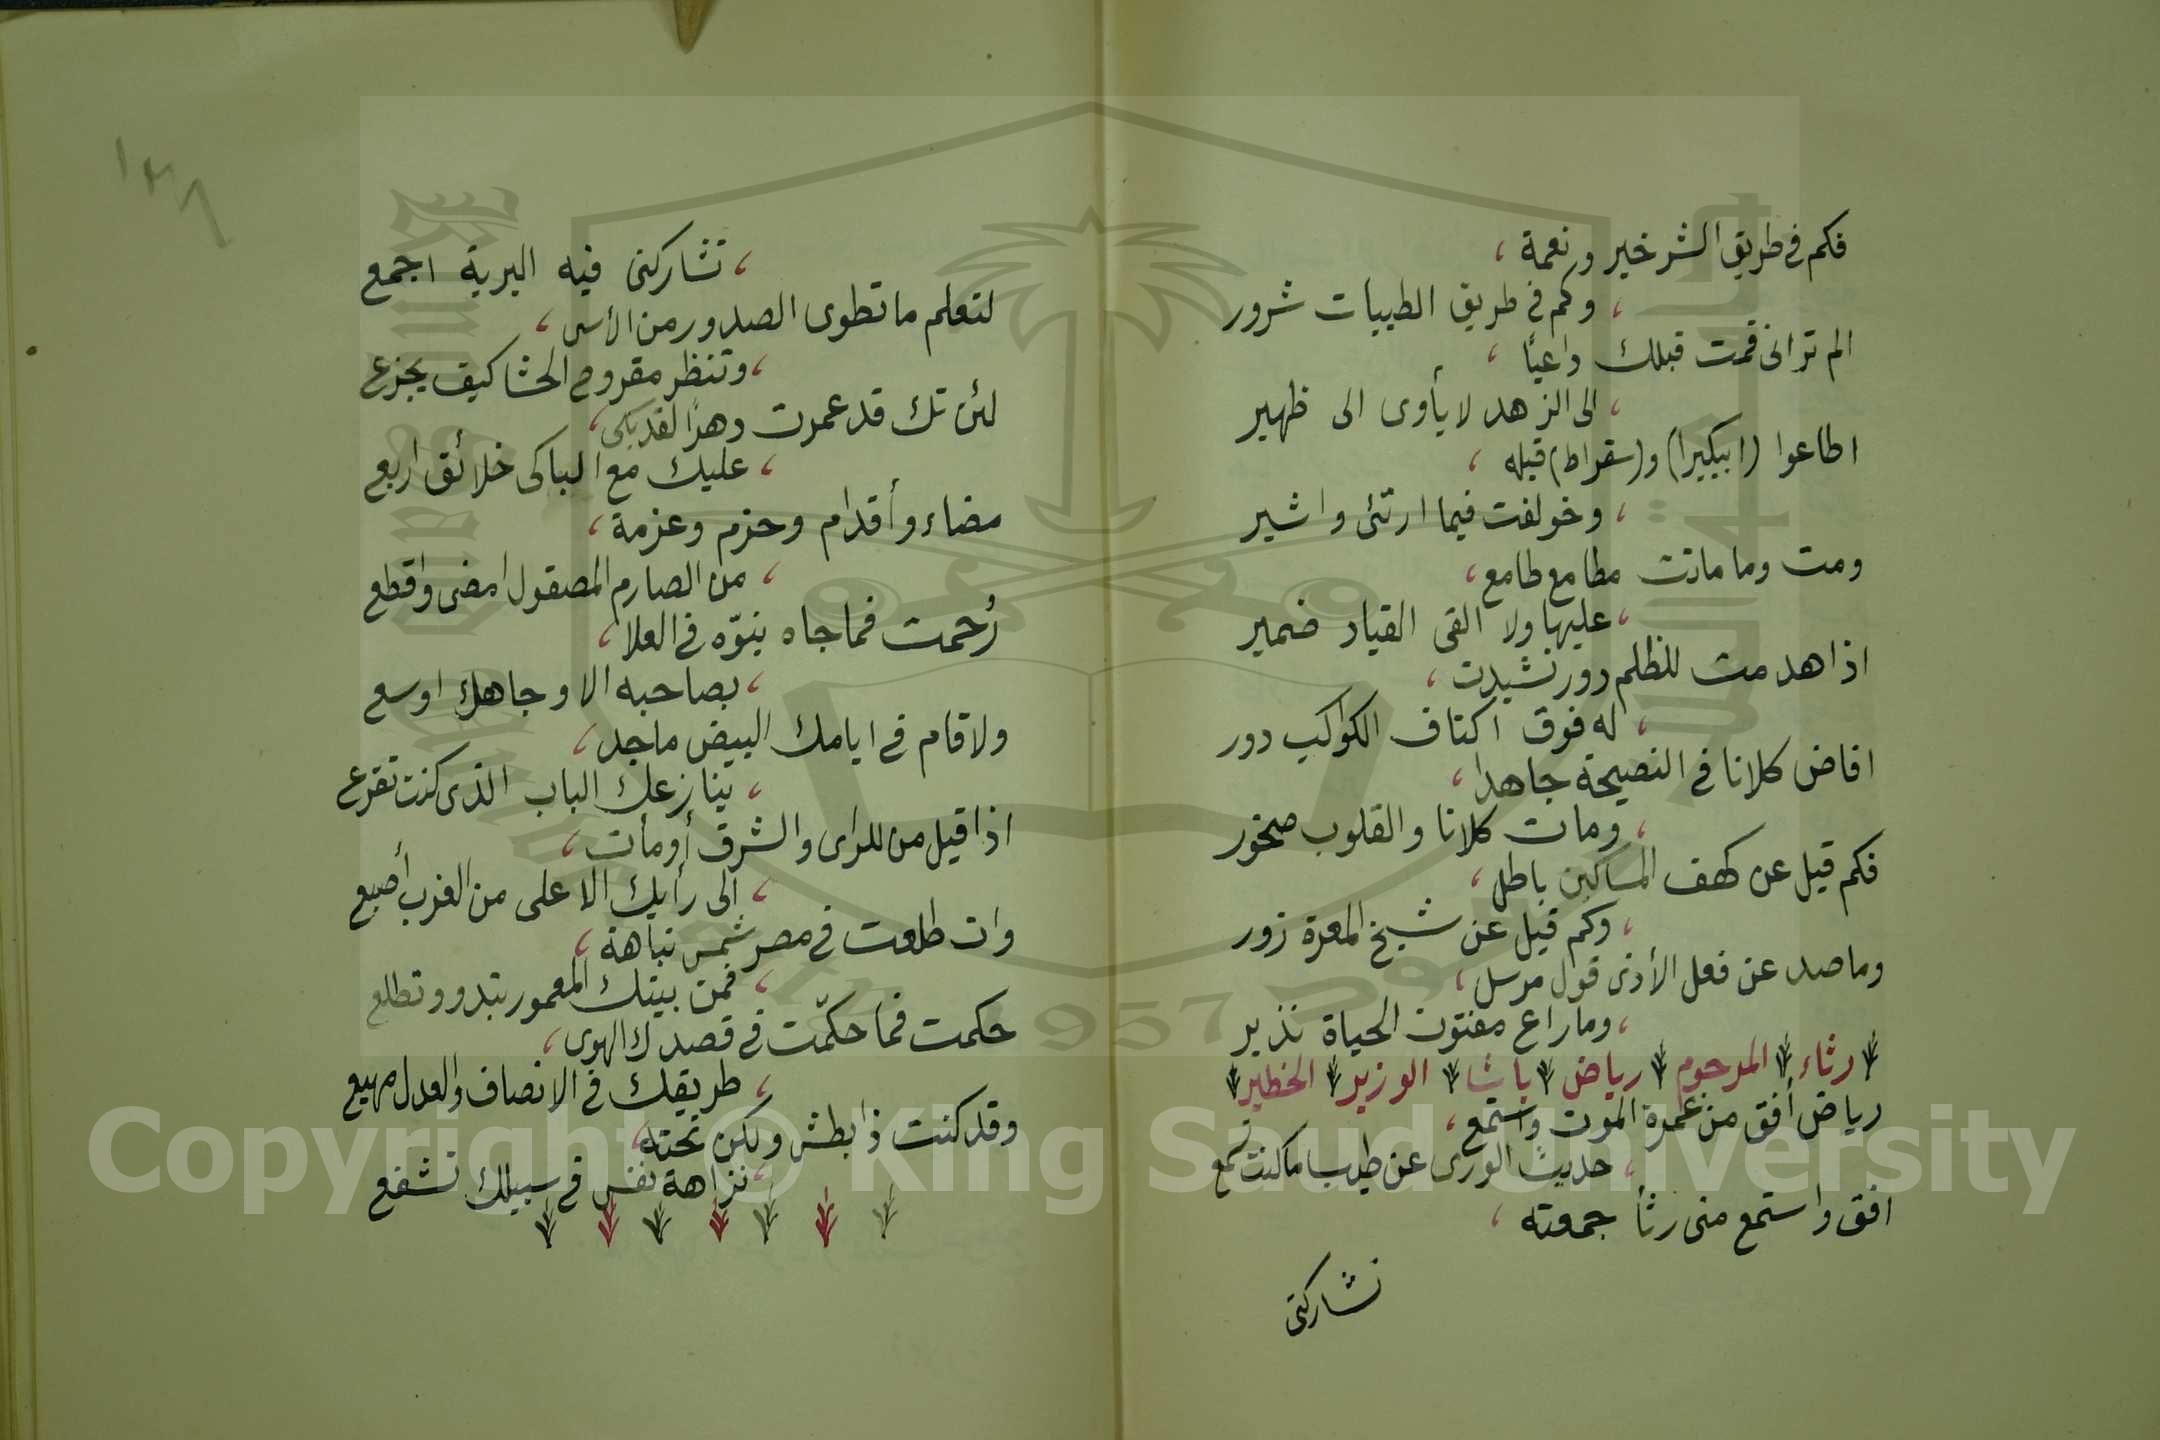 فكم فى طريق الشر خير ونعمة ،
، وكم فى طريق الطيبات شرور
الم ترانى قمت قبلك داعيًا ،
، الى الزهد لا يأوى الى ظهير
اطاعوا (ابيكيرا) و(سقراط) قبله ،
، وخولفت فيما ارتئى واشير
ومت وما ماتت مطامع طامع ،
، عليها ولا القى القياد ضمير
اذا هدمت للظلم دور تشيدت ،
، له فوق اكتاف الكواكب دور
افاض كلانا فى النصيحة جاهدا ،
، ومات كلانا والقلوب صخور
فكم قيل عن كهف المساكين باطل ،
، وكم قيل عن شيخ المعرة زور
وما صد عن فعل الأذى قول مرسل ،
، وما راع مفتون الحياة نذير
رثاء المرحوم رياض باشا الوزير الخطير
رياض أفق من غمرة الموت واستمع ،
، حديث الورى عن طيب ما كنت تسمع
افق واستمع منى رثأ جمعته ،
تشاركنى
١٣٦
، تشاركنى فيه البرية اجمع
لتعلم ما تطوى الصدور من الأسى ،
، وتنظر مقروح الحشا كيف يجزع
لئن تك قد عمرت دهرًا لقد بكى ،
، عليك مع الباكى خلائق اربع
مضاء وأقدام وحزم وعزمة ،
، من الصارم المصقول امضى واقطع
رُحمت فما جاه ينوّه فى العلا ،
، بصاحبه الا وجاهك اوسع
ولا قام فى ايامك البيض ماجد ،
، ينازعك الباب الذى كنت تقرع
اذا قيل من للراى والشرق أومأت ،
، الى رأيك الا على من الغرب أصبع
وان طلعت فى مصر شمس نباهة ،
، فمن بيتك المعمور تبدو وتطلع
حكمت فما حكّمت فى قصدك الهوى ،
، طريقك فى الانصاف والعدل مهيع
وقد كنت ذا بطش ولكن تحته ،
، نزاهة نفس فى سبيلك تشفع
Copyright © King Saud University
1957